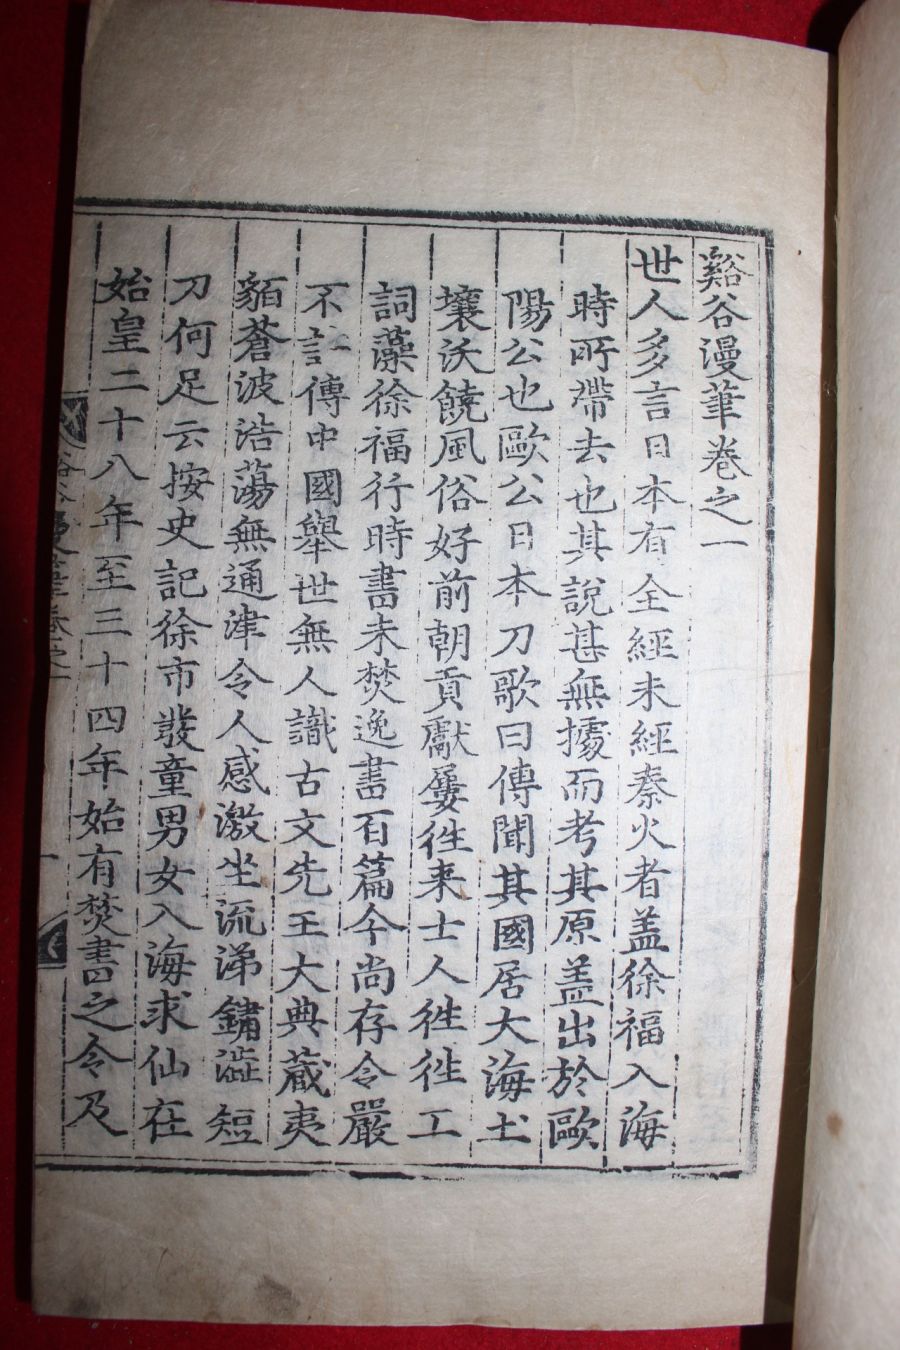 谿谷漫筆卷之一
世人多言日本有全經未經秦火者盖徐福入海
時所帶去也其說甚無據而考其原盖出於歐
陽公也歐公日本刀歌曰傳聞其國居大海土
壤沃饒風俗好前朝貢獻屢徃来士人徃徃工
詞藻徐福行時書未焚逸書百篇今尚存令嚴
不許傳中國舉世無人識古文先王大典藏夷
貊蒼波浩蕩無通津令人感激坐流涕鏽澁短
刀何足云按史記徐市發童男女入海求仙在
始皇二十八年至三十四年始有焚書之令及
谿谷漫筆卷之一
一